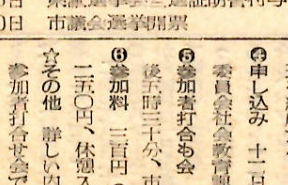 0日　市議会選挙開票
❹申し込み　十二日
委員会社会教育課
❺参加者打合も会
後五時三十分、市
❻参加料　三百円（
二五〇円、休憩入
☆その他　詳しい内
参加者打合せ会で